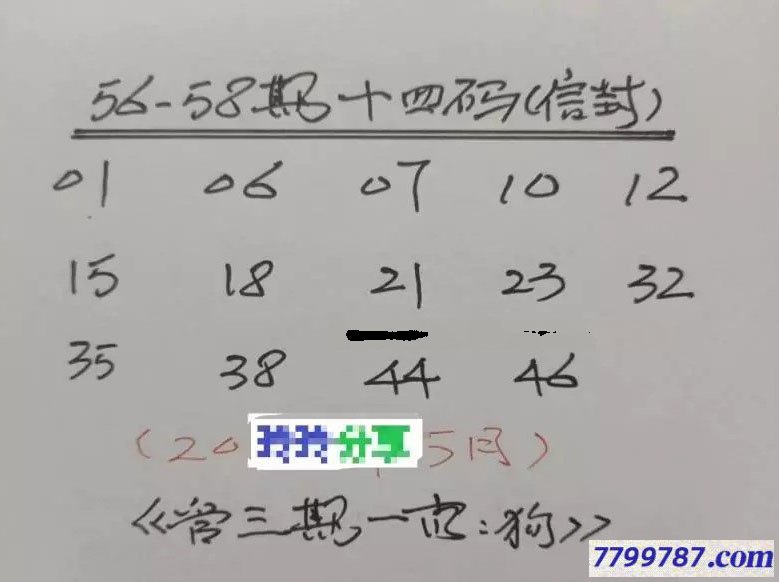 56-58期十四码(信封)
01 06 07 10 12
15 18 21 23 32
35 38 44 46
(20 5日)
玲玲分享
《管三期一肖:狗》
7799787.com